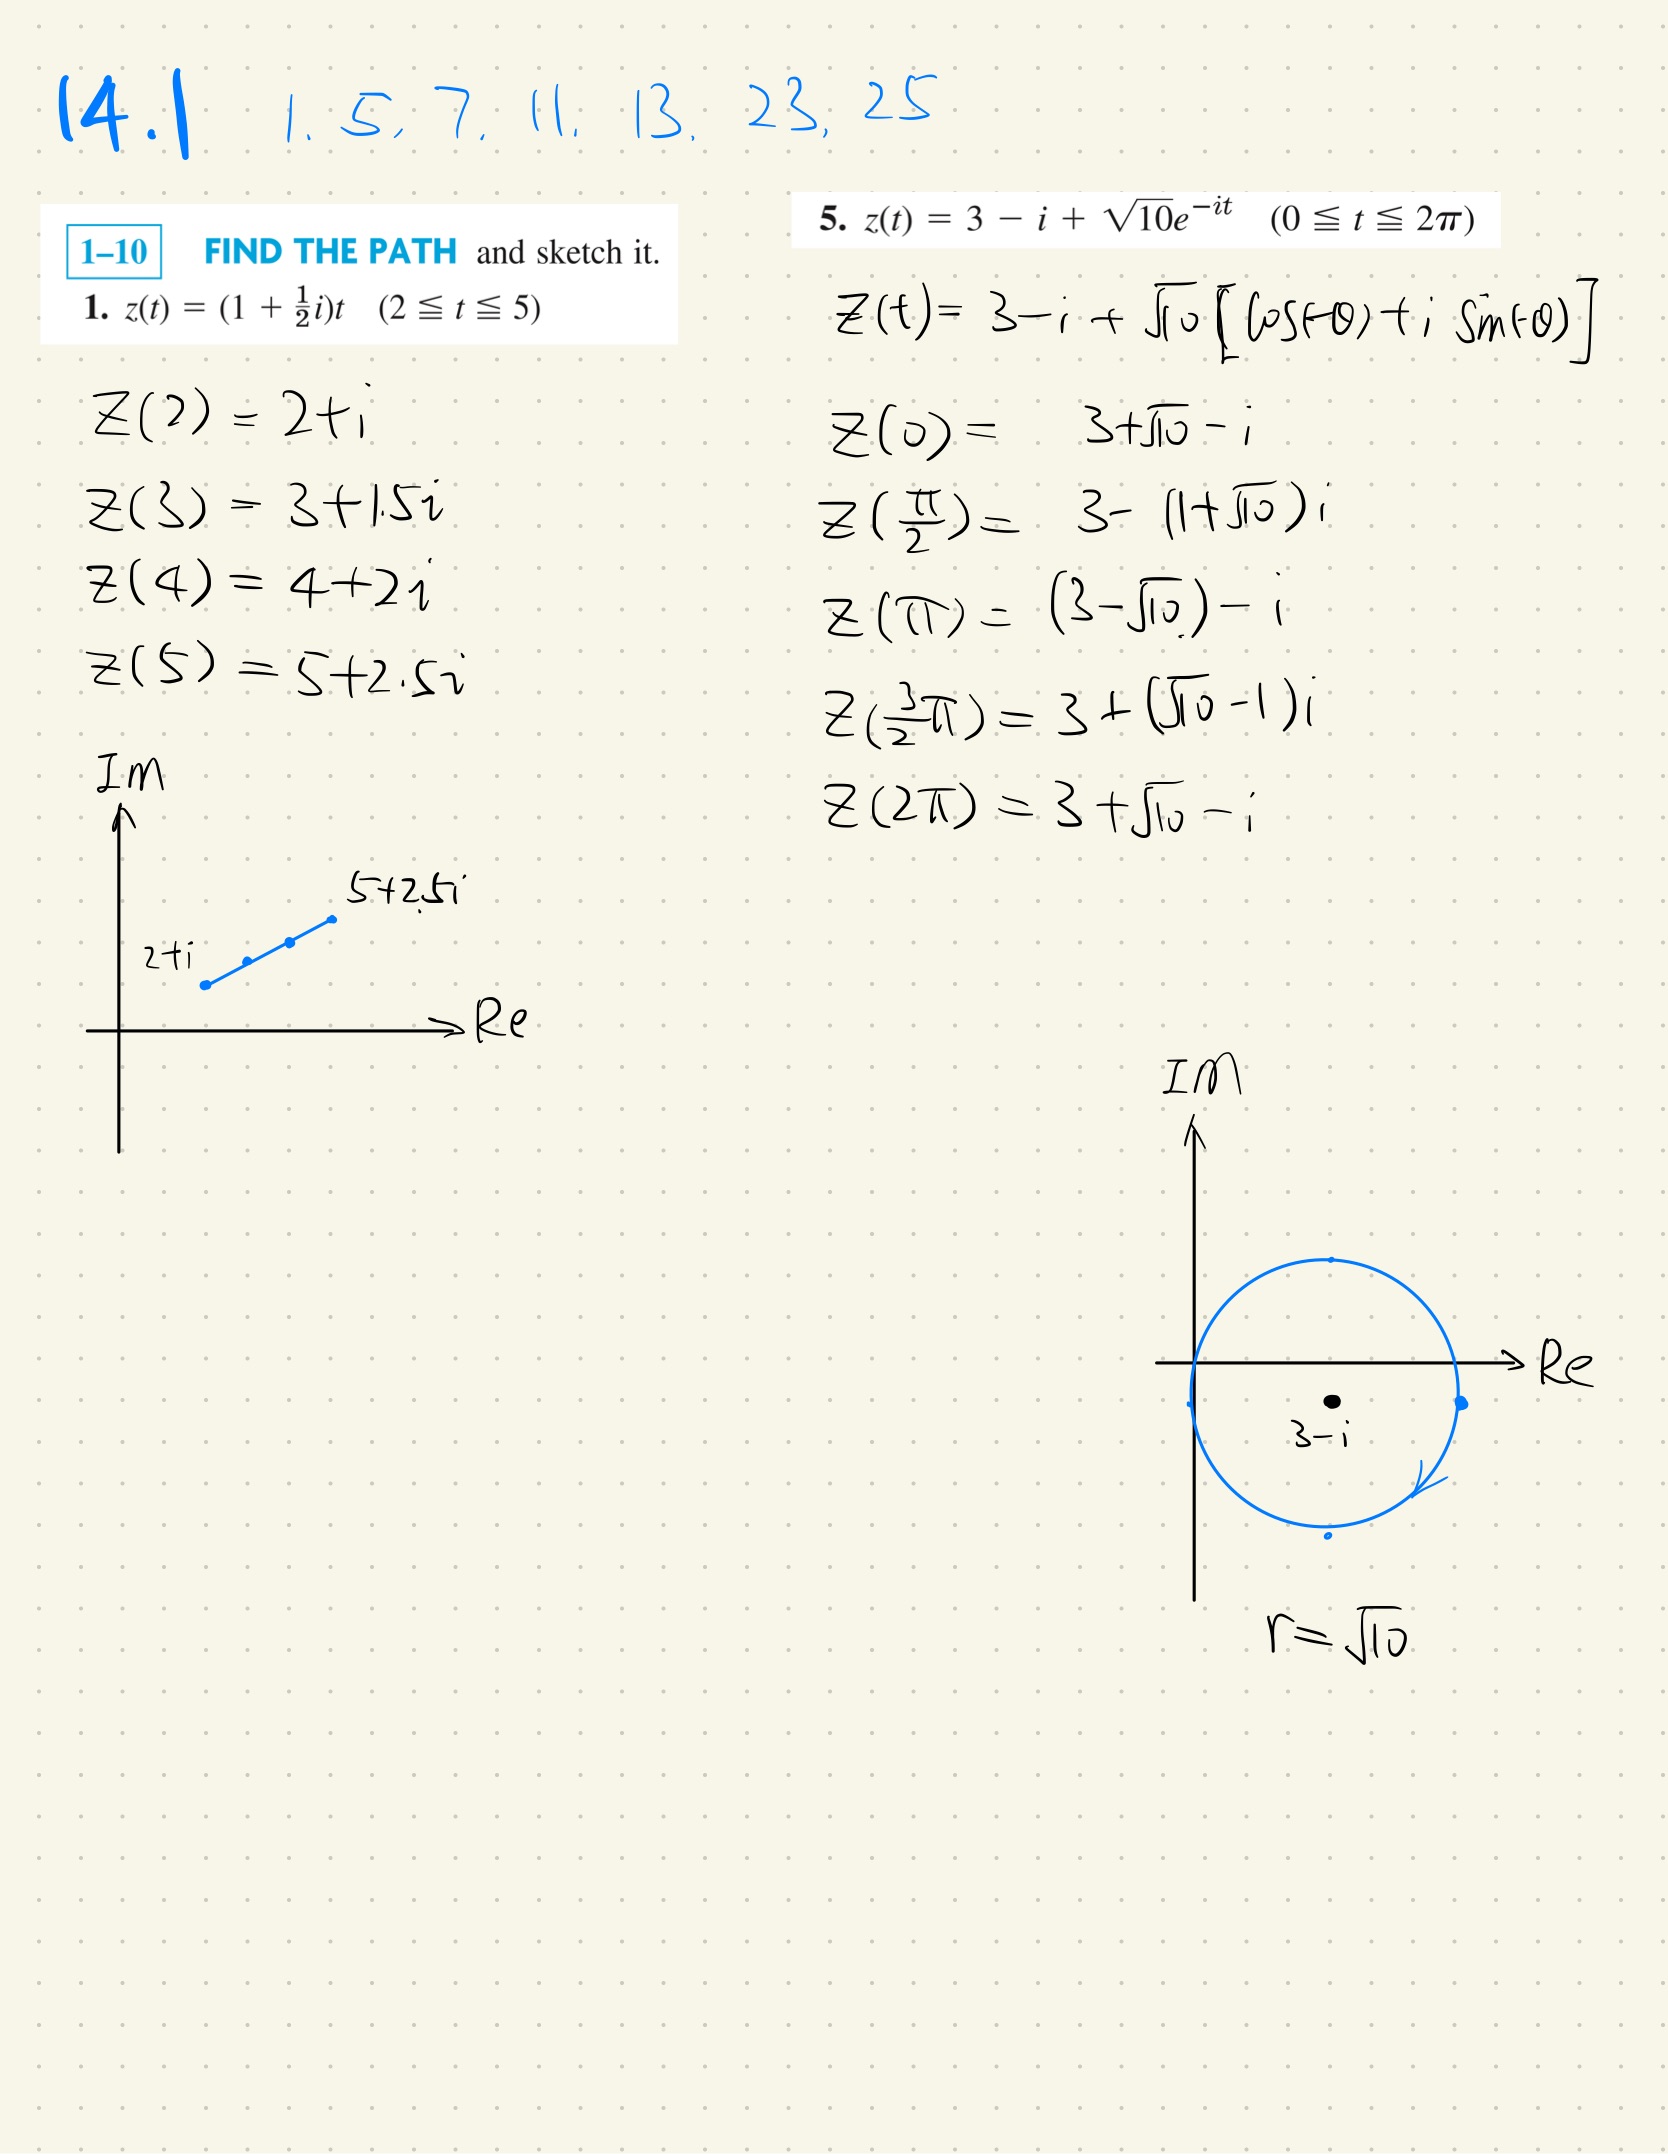 14.1 1. 5, 7. 11. 13. 23, 25
1–10 FIND THE PATH and sketch it.
1. z(t) = (1 + ½i)t (2 ≦ t ≦ 5)
Z(2) = 2+i
Z(3) = 3+1.5i
Z(4) = 4+2i
Z(5) = 5+2.5i
Im
5+2.5i
2+i
Re
5. z(t) = 3 − i + √10e^−it (0 ≦ t ≦ 2π)
Z(t) = 3−i + √10 [cos(-θ) + i sin(-θ)]
Z(0) = 3+√10 − i
Z(π/2) = 3− (1+√10) i
Z(π) = (3−√10) − i
Z(3/2 π) = 3 + (√10 −1) i
Z(2π) = 3 + √10 − i
IM
Re
3−i
r = √10